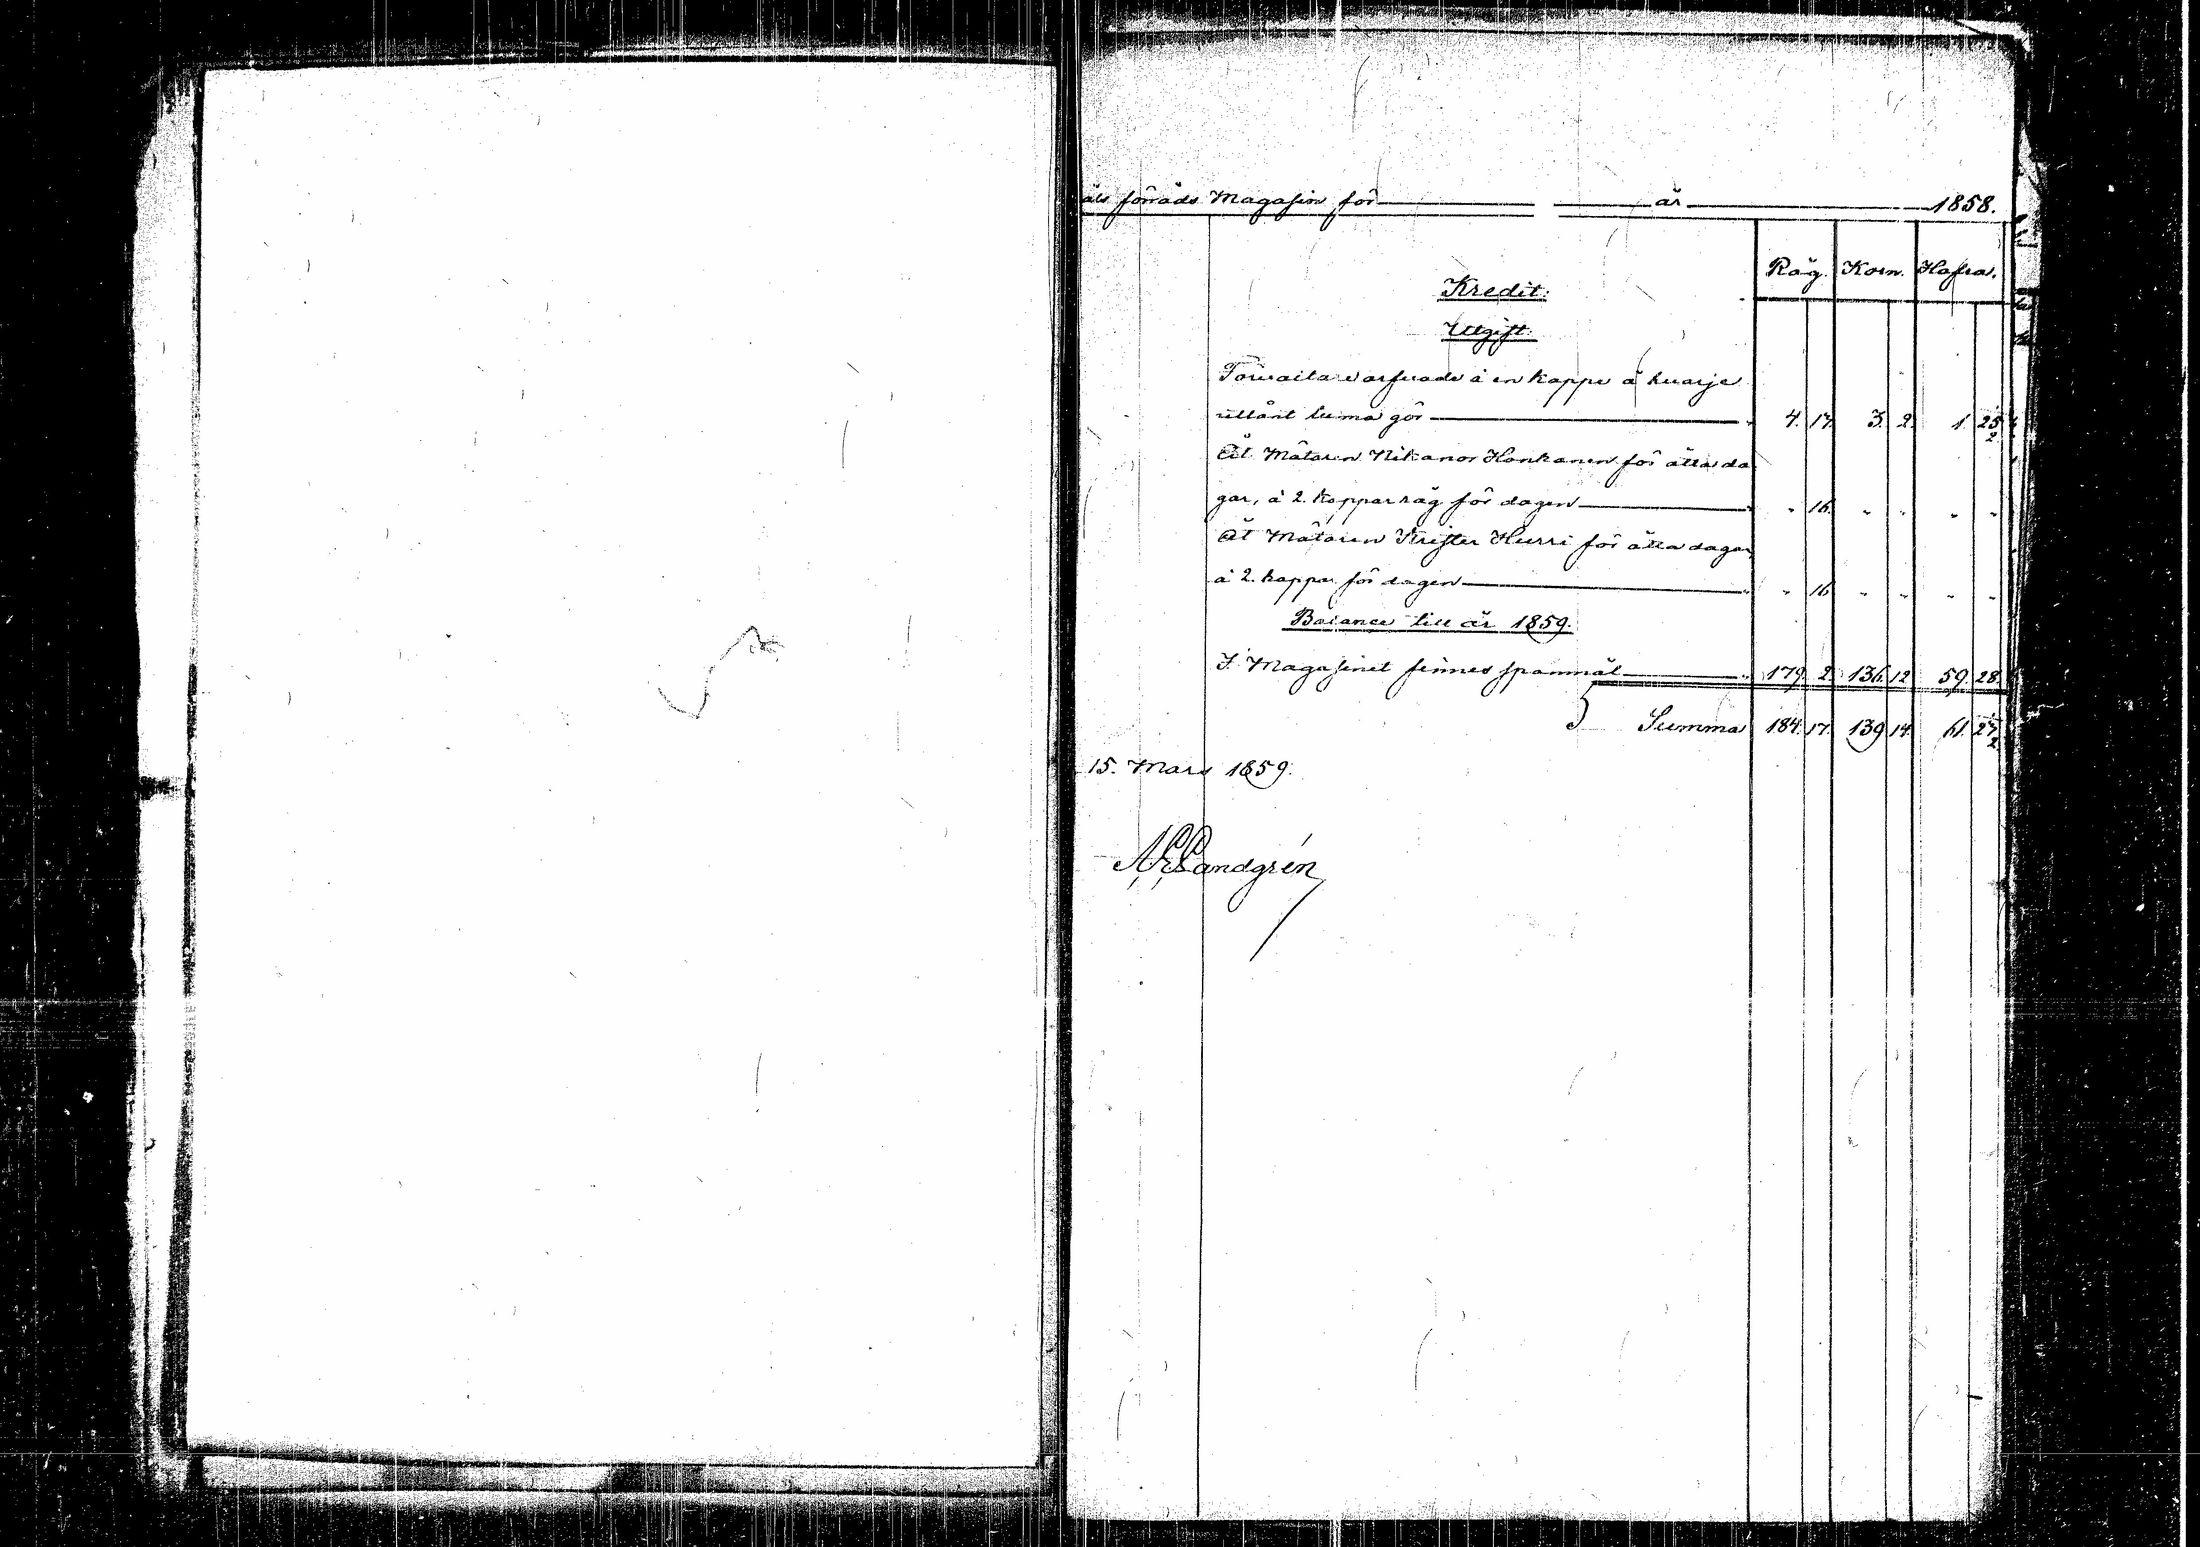 åls förråds Magasin för år 1858.
Råg. Korn. Hafra.
Kredit:
Utgift.
à en kappe å hvarje
utlånt tunna gör 4. 17. 3. 2 1 25 1/2
Åt Mätaren Nikanor Honkanen för åtta da
gar, à 2. kappar råg för dagen " 16. " " " "
Åt Mätaren Krister Hurri för åtta dagar
à 2. kappar för dagen " 16 " " " "
Balance till år 1859.
I Magasinet finnes spannmål 179 2 136. 12 59. 28
Summa 184. 17. 139 14 61. 27 1/2
15. Mars 1859.
Landgrén